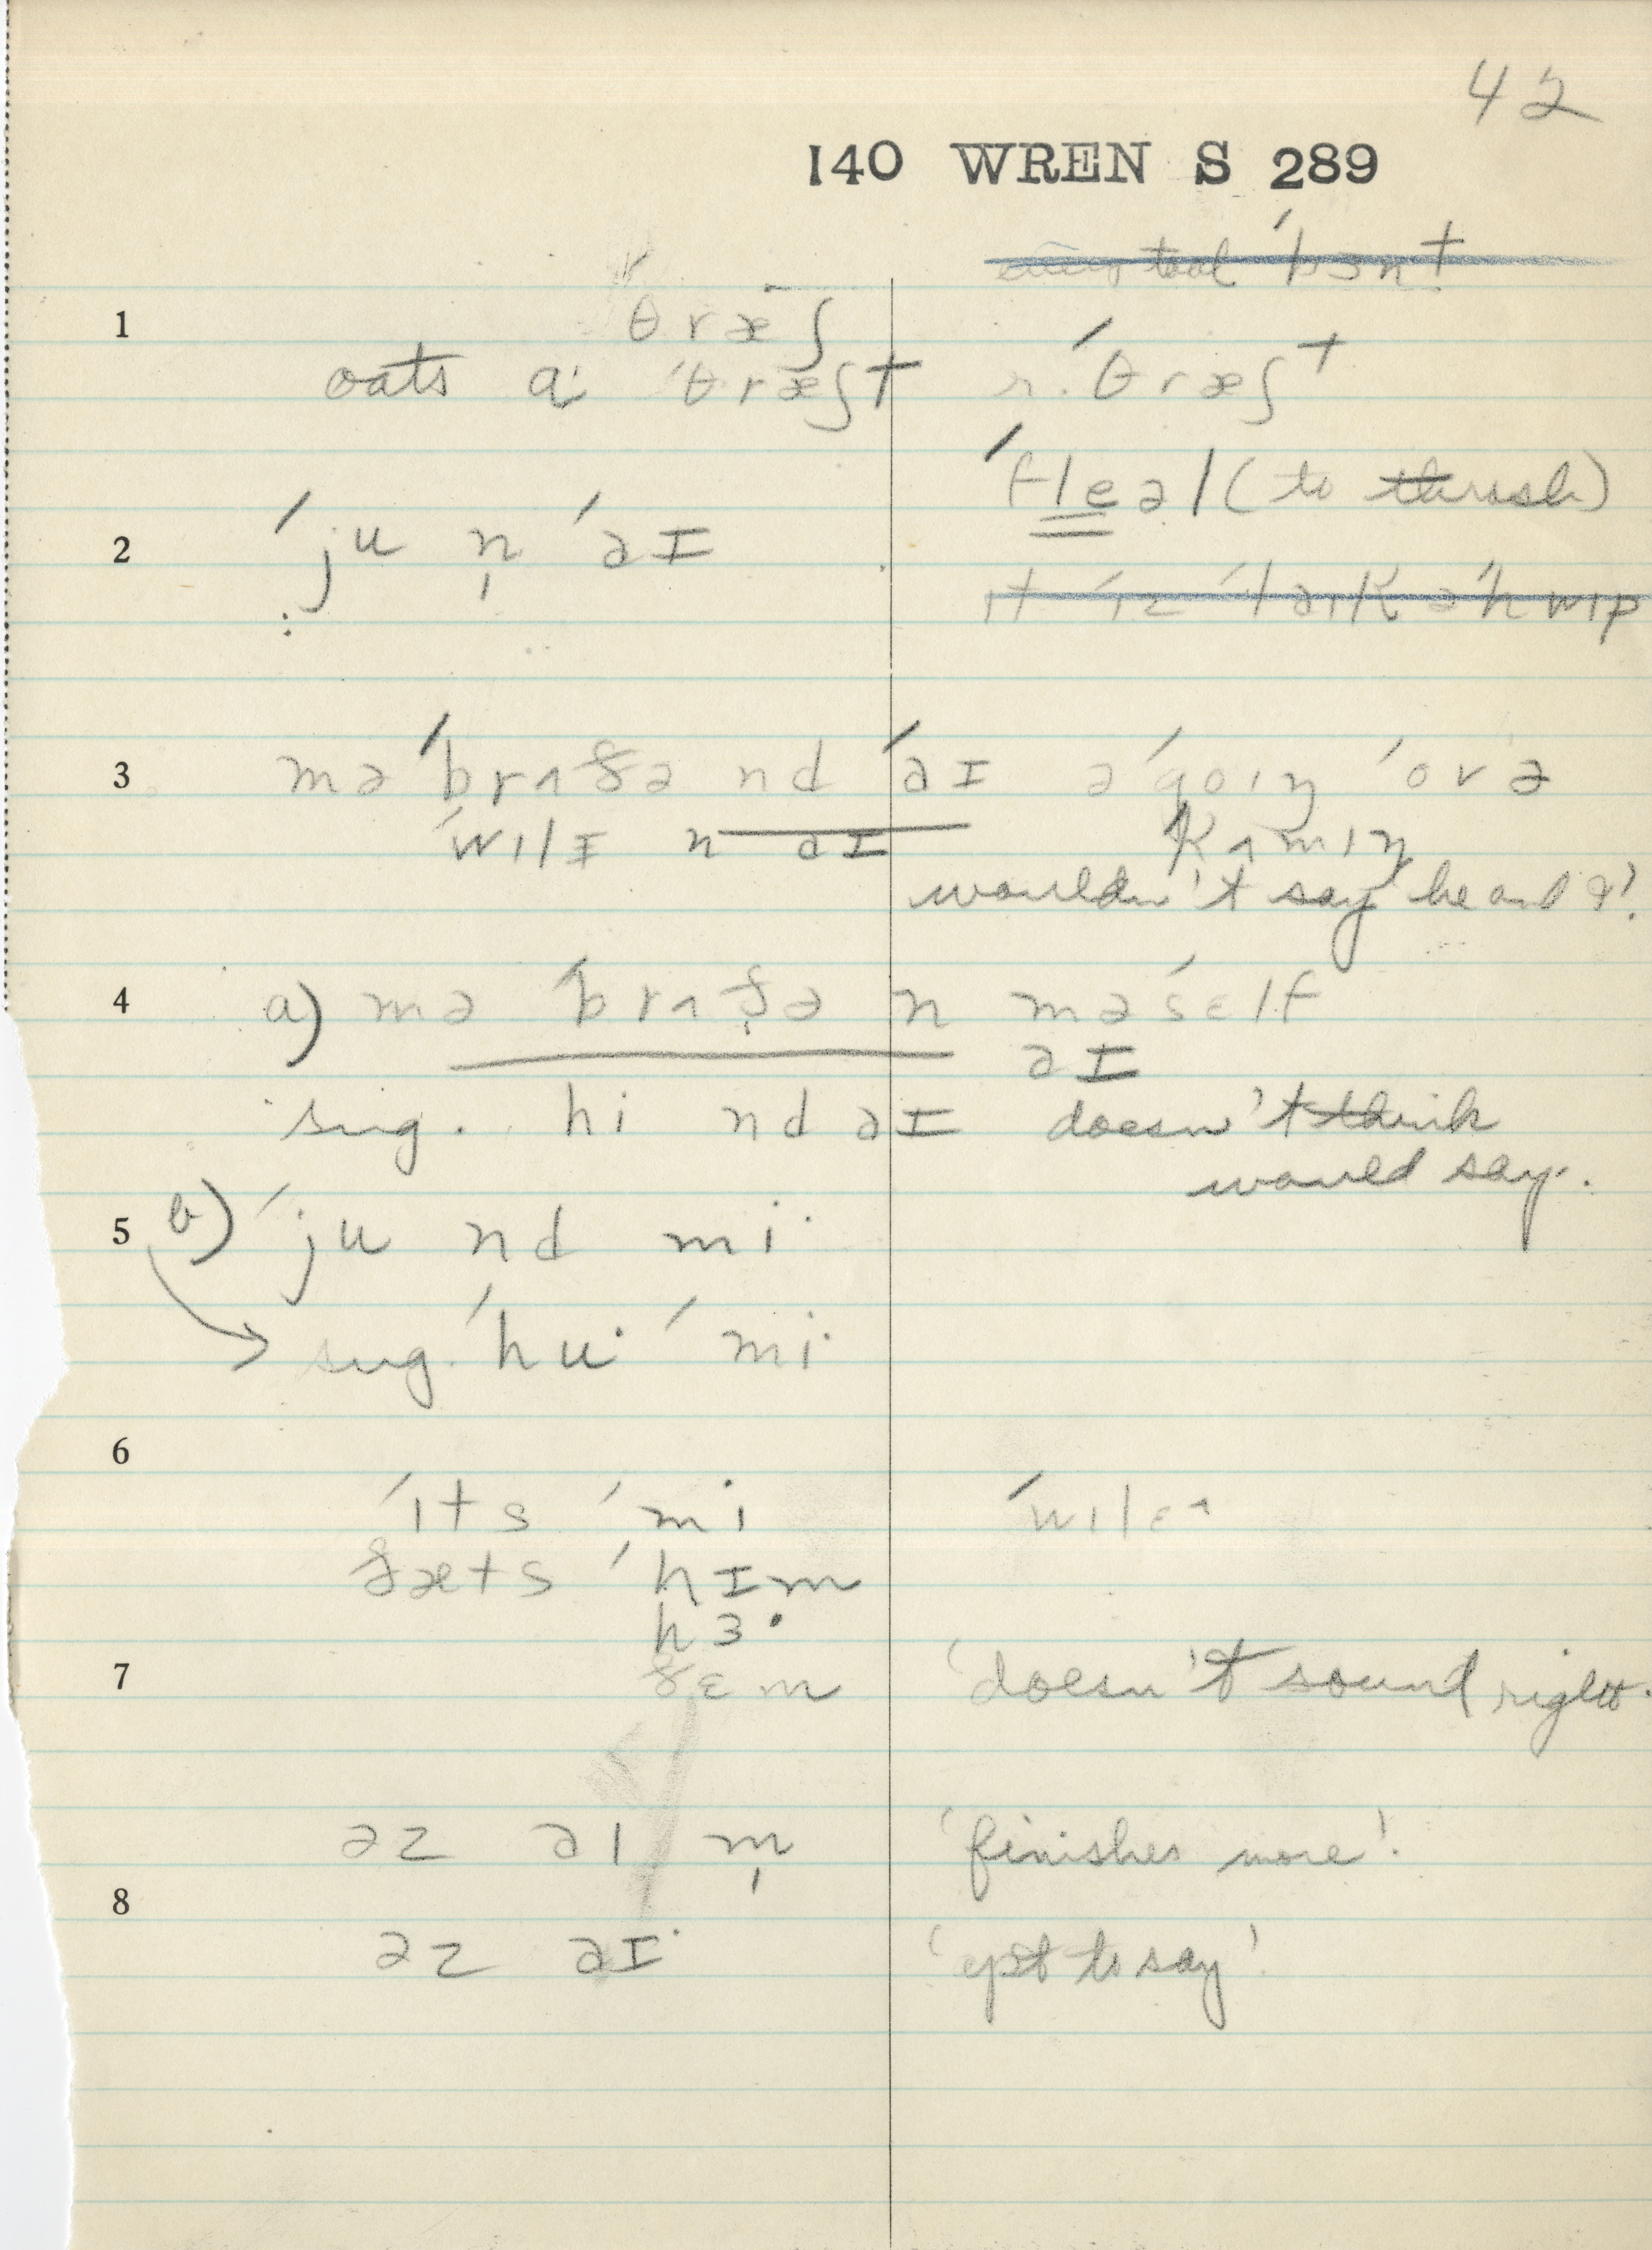 42
140 WREN S 289
tool ˈbɜnt
1
θræʃ
oats aˑ ˈθræʃt r. ˈθræʃt
ˈfleəl (to thrush)
2
ˈju n̩ ˈəɪ
ɪt ˈɪz ˈlaɪk əˈhwɪp
3
mə ˈbrʌðə nd ˈəɪ əˈgoɪŋ ˈovə
ˈwɪlɪ n əɪ ˈkʌmɪŋ
wouldn't say he and I'.
4
a) mə ˈbrʌðə n məˈsɛlf
əɪ
sug. hi nd əɪ doesn't think
would say.
5
b) ˈju nd miˑ
→ sug. ˈhuˑ ˈmiˑ
6
ˈɪts ˈmi ˈwɪlɛʌ
ðæts ˈhɪm
hɜˑ
7
ðɛm 'doesn't sound right.
əz əɪ m̩ 'finishes more'.
8
əz əɪˑ 'ept to say'.